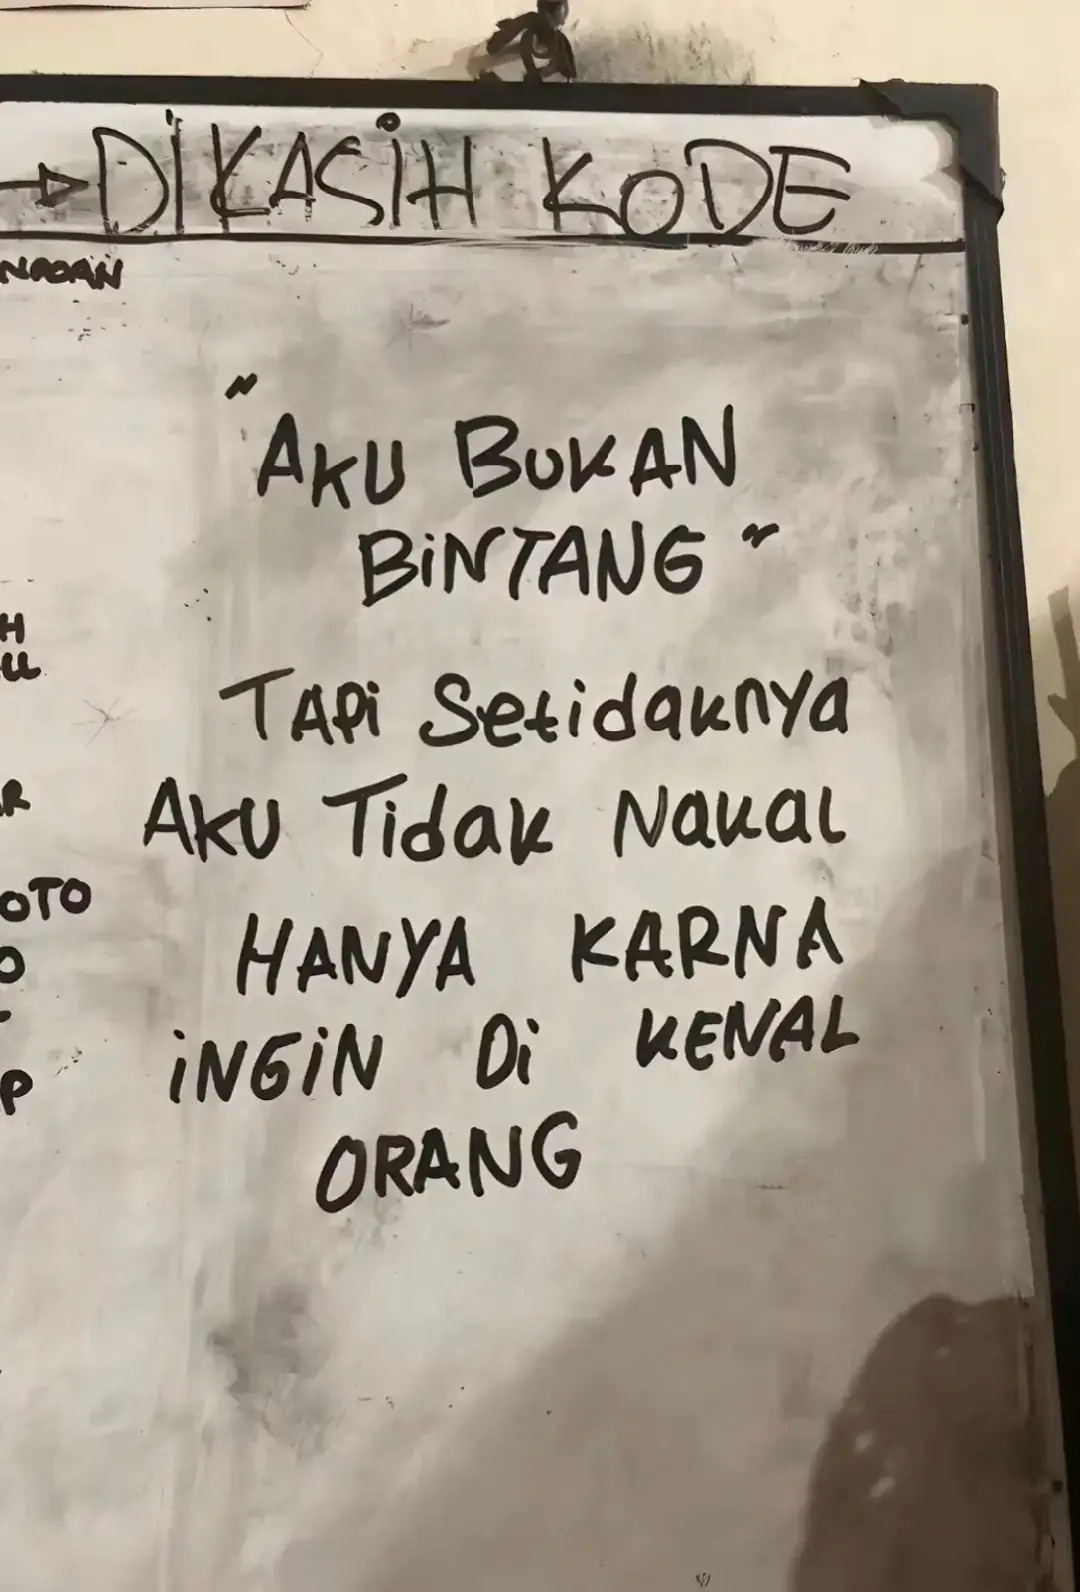 →DiKASiH KODE
"AKU BUKAN
BiNTANG"
TAPi Setidaknya
AKU Tidak Nakal
HANYA KARNA
iNGiN Di KENAL
ORANG
H
LL
R
OTO
O
P